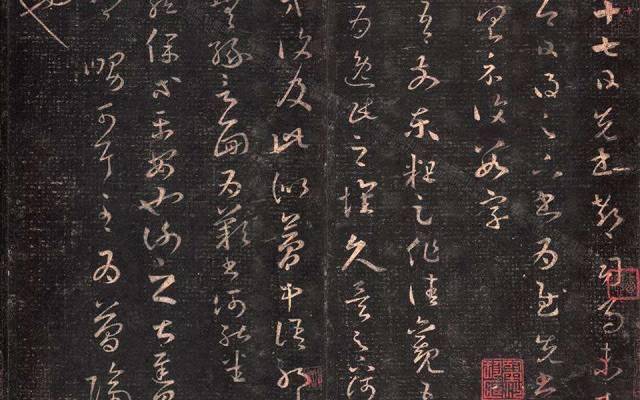 十七日先書郗司馬未去
日得足下書為慰先書
具示復數字
吾前東粗足作佳觀吾
為逸民之懷久矣足下何
方復及此似夢中語耶
無緣言面為歎書何能悉
龍保等平安也謝之甚遲見
卿舅可耳至為簡隔
也